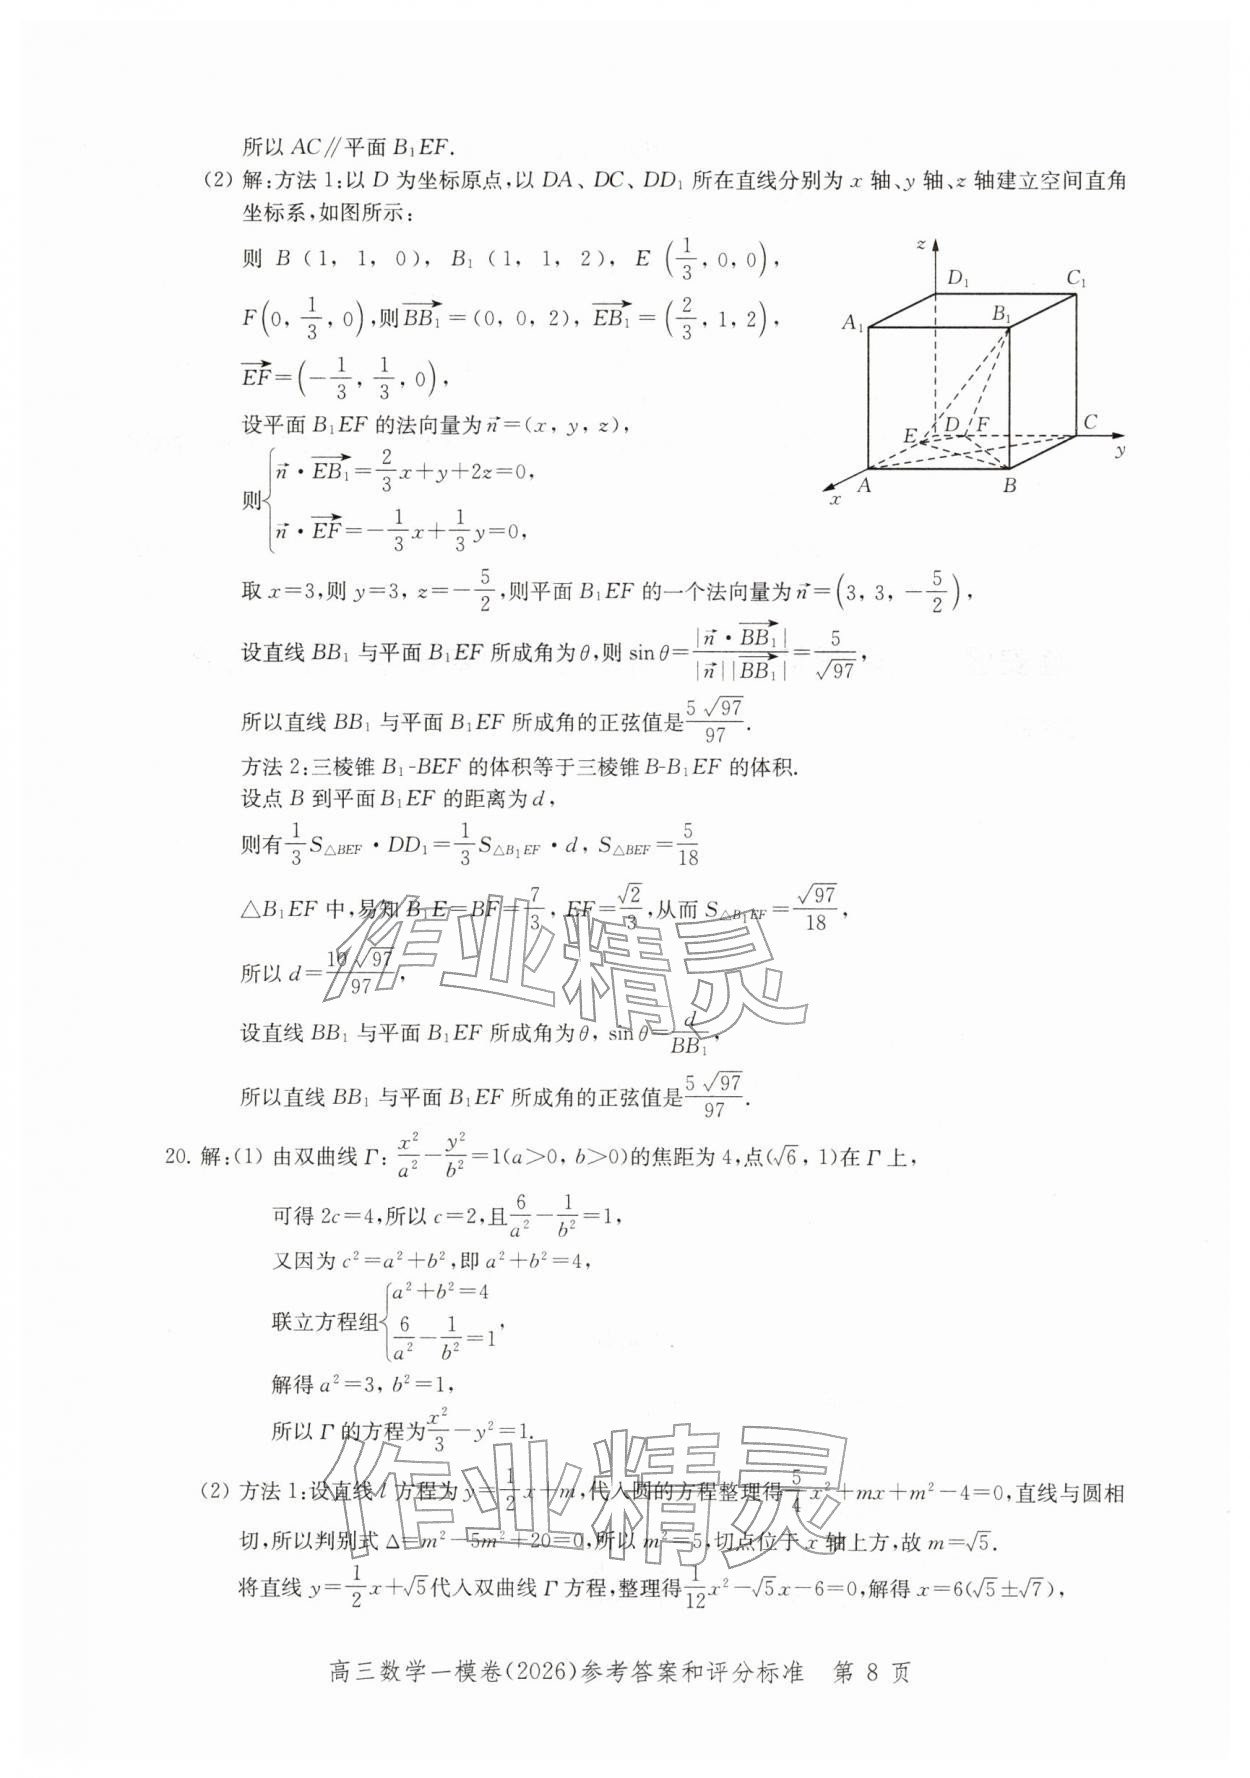 所以 AC∥平面 B₁EF.
(2) 解:方法 1:以 D 为坐标原点,以 DA、DC、DD₁ 所在直线分别为 x 轴、y 轴、z 轴建立空间直角
坐标系,如图所示:
则 B(1, 1, 0), B₁(1, 1, 2), E(1/3, 0, 0),
F(0, 1/3, 0),则→BB₁=(0, 0, 2), →EB₁=(2/3, 1, 2),
→EF=(-1/3, 1/3, 0),
设平面 B₁EF 的法向量为 →n=(x, y, z),
则{→n·→EB₁=2/3x+y+2z=0,
→n·→EF=-1/3x+1/3y=0,
z
D₁
C₁
A₁
B₁
E
D
F
C
y
x
A
B
取 x=3,则 y=3, z=-5/2,则平面 B₁EF 的一个法向量为 →n=(3, 3, -5/2),
设直线 BB₁ 与平面 B₁EF 所成角为 θ,则 sin θ=|→n·→BB₁|/|→n||→BB₁|=5/√97,
所以直线 BB₁ 与平面 B₁EF 所成角的正弦值是5√97/97.
方法 2:三棱锥 B₁-BEF 的体积等于三棱锥 B-B₁EF 的体积.
设点 B 到平面 B₁EF 的距离为 d,
则有1/3S△BEF·DD₁=1/3S△B₁EF·d, S△BEF=5/18
△B₁EF 中,易知 B₁E=BF=7/3, EF=√2/3,从而 S△B₁EF=√97/18,
所以 d=10√97/97,
设直线 BB₁ 与平面 B₁EF 所成角为 θ, sin θ=d/BB₁,
所以直线 BB₁ 与平面 B₁EF 所成角的正弦值是5√97/97.
20. 解:(1) 由双曲线 Γ: x²/a²-y²/b²=1(a>0, b>0)的焦距为 4,点(√6, 1)在 Γ 上,
可得 2c=4,所以 c=2,且6/a²-1/b²=1,
又因为 c²=a²+b²,即 a²+b²=4,
联立方程组{a²+b²=4
6/a²-1/b²=1,
解得 a²=3, b²=1,
所以 Γ 的方程为x²/3-y²=1.
(2) 方法 1:设直线 l 方程为 y=1/2x+m,代入圆的方程整理得5/4x²+mx+m²-4=0,直线与圆相
切,所以判别式 Δ=m²-5m²+20=0,所以 m²=5,切点位于 x 轴上方,故 m=√5.
将直线 y=1/2x+√5代入双曲线 Γ 方程,整理得1/12x²-√5x-6=0,解得 x=6(√5±√7),
高三数学一模卷(2026)参考答案和评分标准 第 8 页
作业精灵
作业精灵